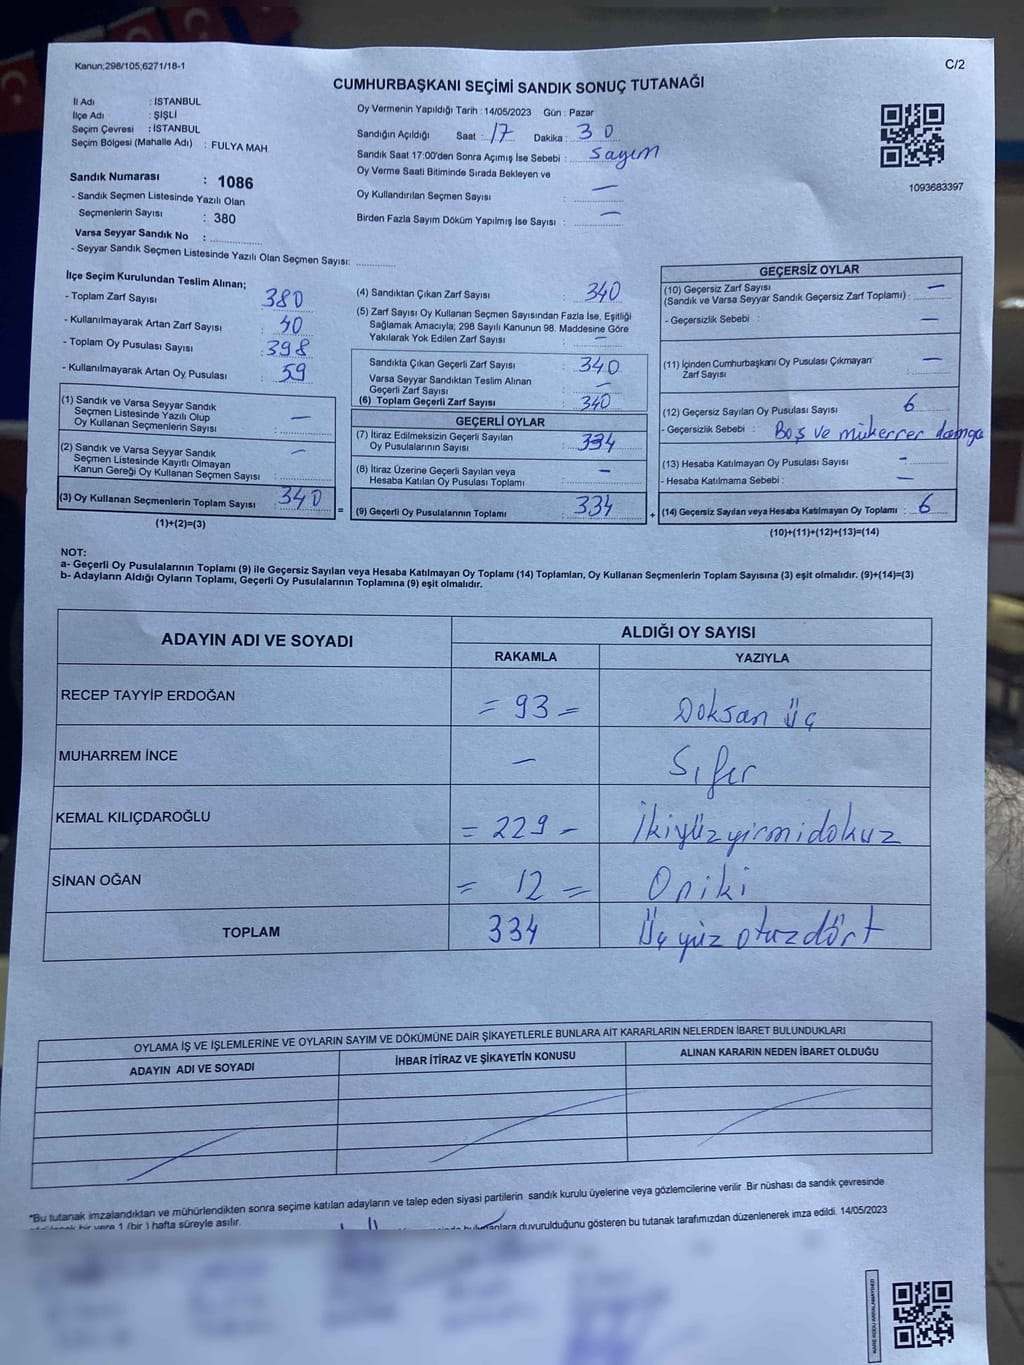 Kanun;298/105,6271/18-1
C/2
CUMHURBAŞKANI SEÇİMİ SANDIK SONUÇ TUTANAĞI
İl Adı : İSTANBUL
İlçe Adı : ŞİŞLİ
Seçim Çevresi : İSTANBUL
Seçim Bölgesi (Mahalle Adı) : FULYA MAH
Sandık Numarası : 1086
- Sandık Seçmen Listesinde Yazılı Olan
Seçmenlerin Sayısı : 380
Varsa Seyyar Sandık No :
- Seyyar Sandık Seçmen Listesinde Yazılı Olan Seçmen Sayısı:
Oy Vermenin Yapıldığı Tarih : 14/05/2023 Gün : Pazar
Sandığın Açıldığı Saat : 17 Dakika : 30
Sandık Saat 17:00'den Sonra Açımış İse Sebebi : sayım
Oy Verme Saati Bitiminde Sırada Bekleyen ve
Oy Kullandırılan Seçmen Sayısı : —
Birden Fazla Sayım Döküm Yapılmış İse Sayısı : —
1093683397
İlçe Seçim Kurulundan Teslim Alınan;
- Toplam Zarf Sayısı : 380
- Kullanılmayarak Artan Zarf Sayısı : 40
- Toplam Oy Pusulası Sayısı : 398
- Kullanılmayarak Artan Oy Pusulası : 59
(1) Sandık ve Varsa Seyyar Sandık
Seçmen Listesinde Yazılı Olup
Oy Kullanan Seçmenlerin Sayısı : —
(2) Sandık ve Varsa Seyyar Sandık
Seçmen Listesinde Kayıtlı Olmayan
Kanun Gereği Oy Kullanan Seçmen Sayısı : —
(3) Oy Kullanan Seçmenlerin Toplam Sayısı : 340
(1)+(2)=(3)
(4) Sandıktan Çıkan Zarf Sayısı : 340
(5) Zarf Sayısı Oy Kullanan Seçmen Sayısından Fazla İse, Eşitliği
Sağlamak Amacıyla; 298 Sayılı Kanunun 98. Maddesine Göre
Yakılarak Yok Edilen Zarf Sayısı : —
Sandıkta Çıkan Geçerli Zarf Sayısı : 340
Varsa Seyyar Sandıktan Teslim Alınan
Geçerli Zarf Sayısı : —
(6) Toplam Geçerli Zarf Sayısı : 340
=
GEÇERLİ OYLAR
(7) İtiraz Edilmeksizin Geçerli Sayılan
Oy Pusulasının Sayısı : 334
(8) İtiraz Üzerine Geçerli Sayılan veya
Hesaba Katılan Oy Pusulası Toplamı : —
(9) Geçerli Oy Pusulalarının Toplamı : 334
+
GEÇERSİZ OYLAR
(10) Geçersiz Zarf Sayısı
(Sandık ve Varsa Seyyar Sandık Geçersiz Zarf Toplamı) : —
- Geçersizlik Sebebi : —
(11) İçinden Cumhurbaşkanı Oy Pusulası Çıkmayan
Zarf Sayısı : —
(12) Geçersiz Sayılan Oy Pusulası Sayısı : 6
- Geçersizlik Sebebi : Boş ve mükerrer damga
(13) Hesaba Katılmayan Oy Pusulası Sayısı : —
- Hesaba Katılmama Sebebi : —
(14) Geçersiz Sayılan veya Hesaba Katılmayan Oy Toplamı : 6
(10)+(11)+(12)+(13)=(14)
NOT:
a- Geçerli Oy Pusulalarının Toplamı (9) ile Geçersiz Sayılan veya Hesaba Katılmayan Oy Toplamı (14) Toplamları, Oy Kullanan Seçmenlerin Toplam Sayısına (3) eşit olmalıdır. (9)+(14)=(3)
b- Adayların Aldığı Oyların Toplamı, Geçerli Oy Pusulalarının Toplamına (9) eşit olmalıdır.
ADAYIN ADI VE SOYADI ALDIĞI OY SAYISI
RAKAMLA YAZIYLA
RECEP TAYYİP ERDOĞAN = 93 = Doksan üç
MUHARREM İNCE — Sıfır
KEMAL KILIÇDAROĞLU = 229 - İkiyüzyirmidokuz
SİNAN OĞAN = 12 = Oniki
TOPLAM 334 Üçyüz otuzdört
OYLAMA İŞ VE İŞLEMLERİNE VE OYLARIN SAYIM VE DÖKÜMÜNE DAİR ŞİKAYETLERLE BUNLARA AİT KARARLARIN NELERDEN İBARET BULUNDUKLARI
ADAYIN ADI VE SOYADI İHBAR İTİRAZ VE ŞİKAYETİN KONUSU ALINAN KARARIN NEDEN İBARET OLDUĞU
*Bu tutanak imzalandıktan ve mühürlendikten sonra seçime katılan adayların ve talep eden siyasi partilerin sandık kurulu üyelerine veya gözlemcilerine verilir .Bir nüshası da sandık çevresinde
bir yere 1 (bir ) hafta süreyle asılır.
duyurulduğunu gösteren bu tutanak tarafımızdan düzenlenerek imza edildi. 14/05/2023
KARE KODU KARALAMAYINIZ!